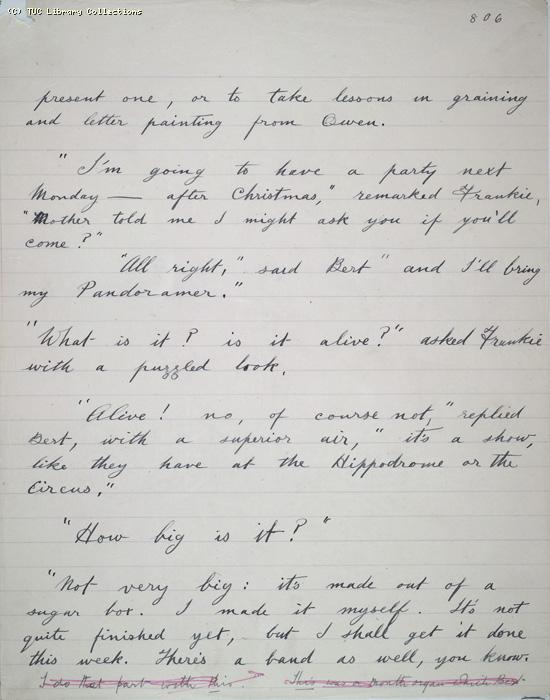 (C) TUC Library Collections
806
present one, or to take lessons in graining
and letter painting from Owen.
"I'm going to have a party next
Monday — after Christmas," remarked Frankie,
"Mother told me I might ask you if you'll
come?"
"All right," said Bert "and I'll bring
my Pandoramer."
"What is it? is it alive?" asked Frankie
with a puzzled look.
"Alive! no, of course not," replied
Bert, with a superior air, "it's a show,
like they have at the Hippodrome or the
Circus."
"How big is it?"
"Not very big: it's made out of a
sugar box. I made it myself. It's not
quite finished yet, but I shall get it done
this week. There's a band as well, you know.
I do that part with this. This was a mouth organ which Bert